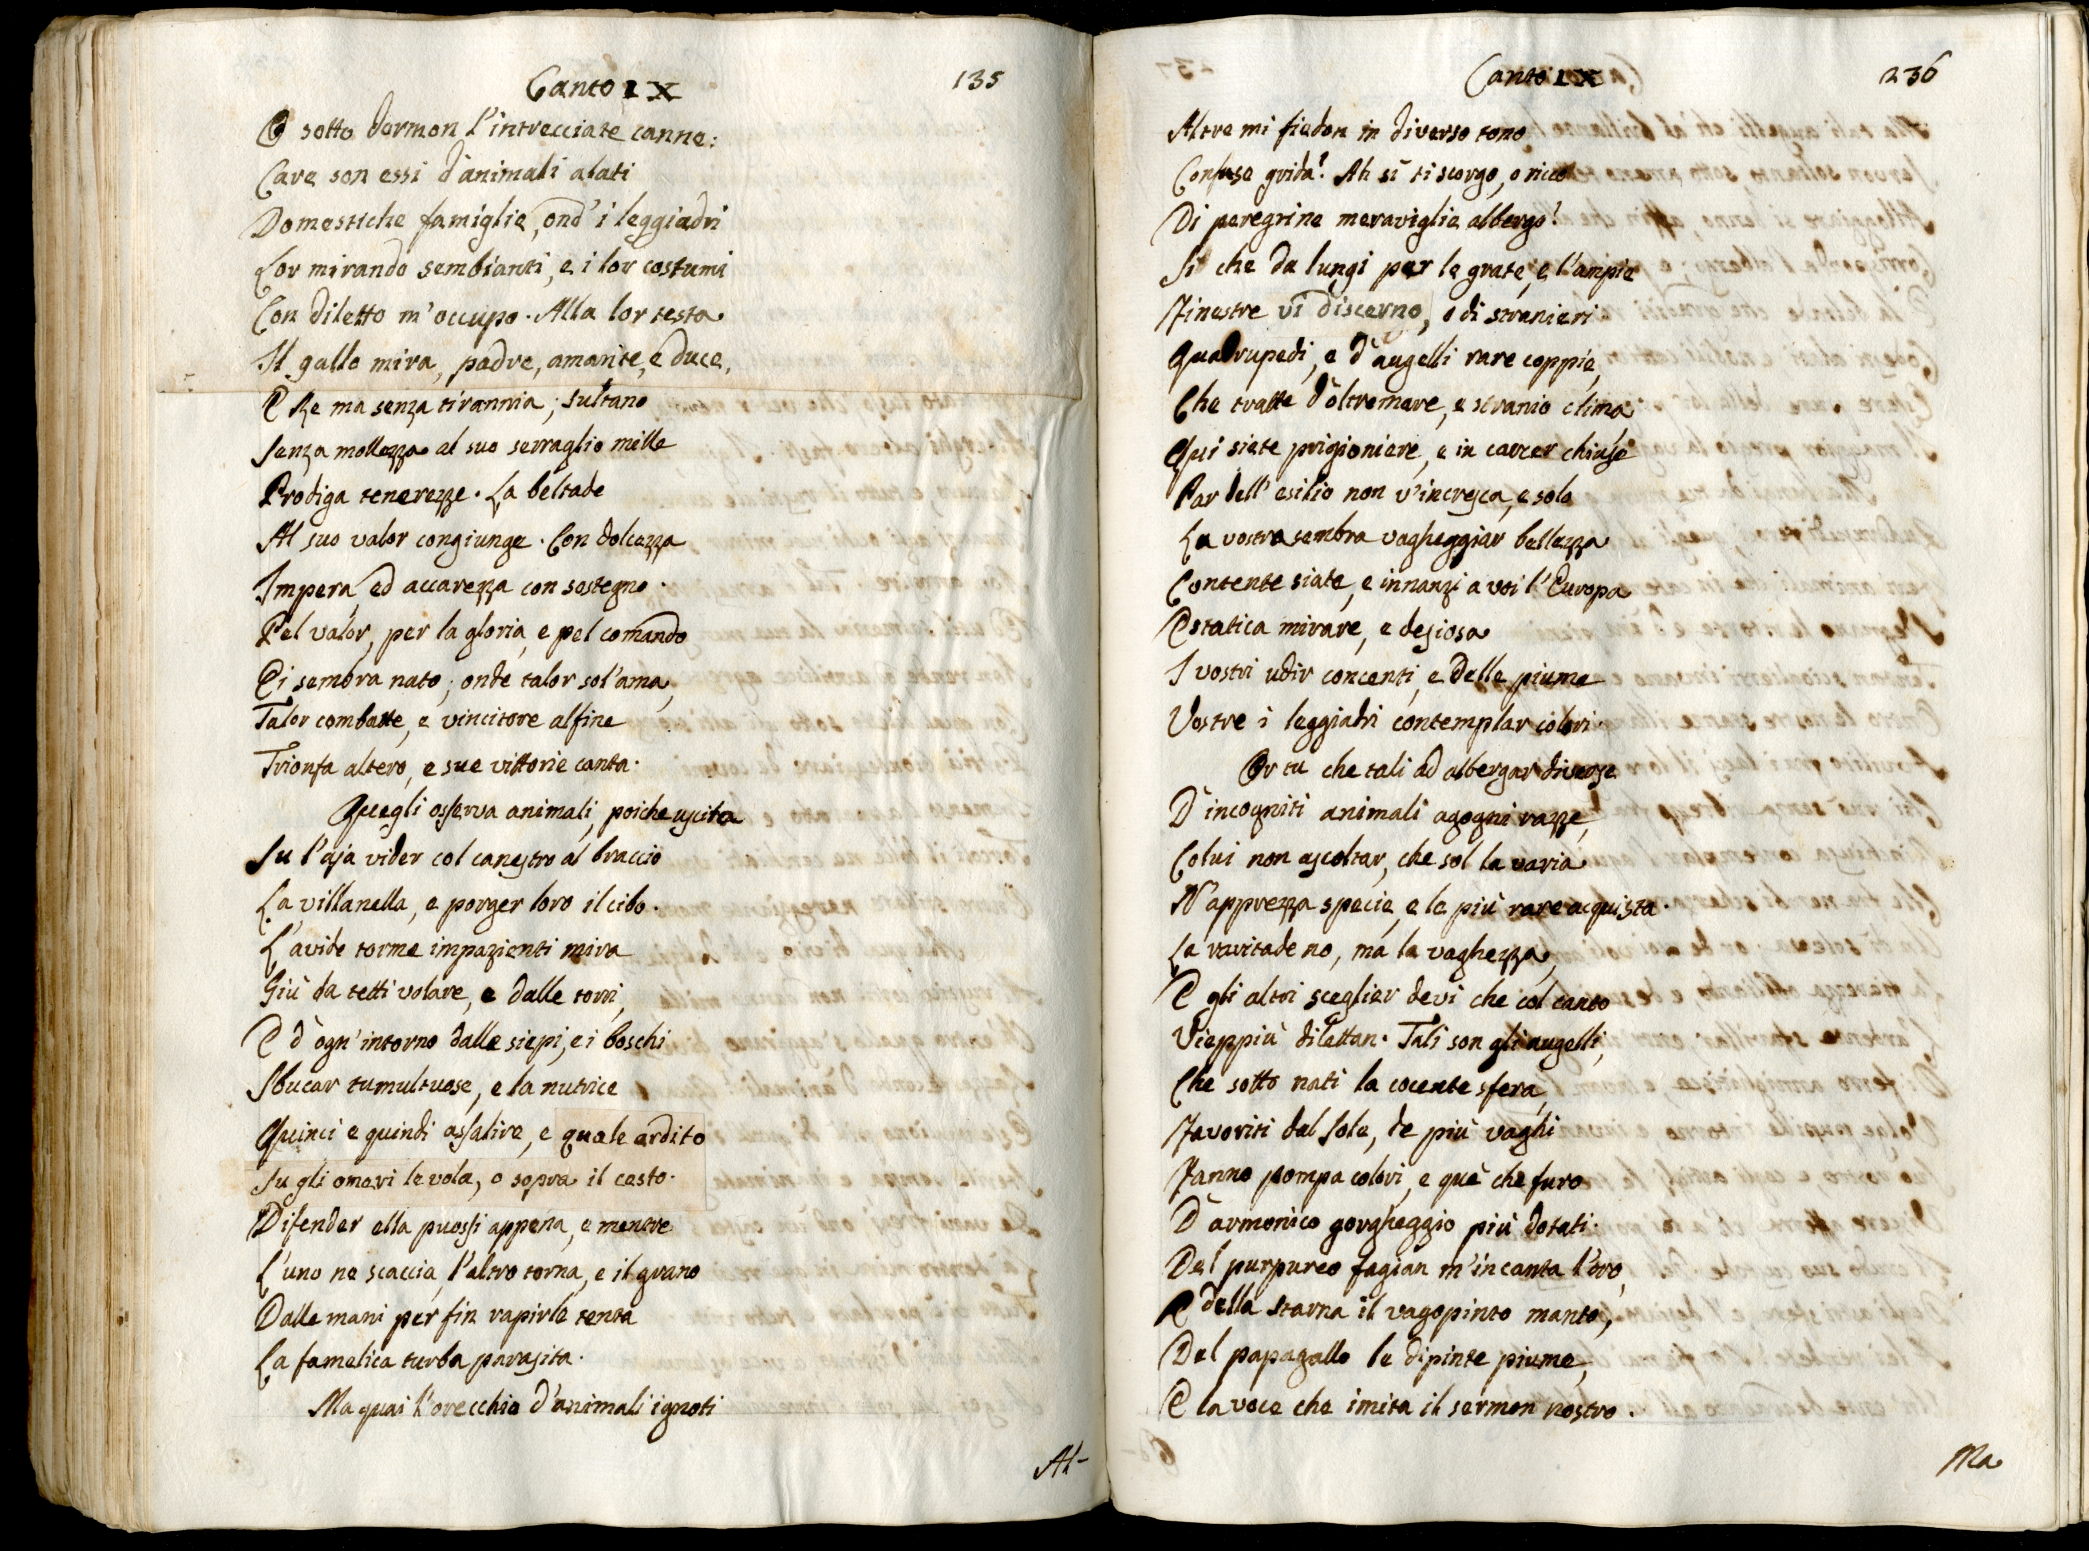 Canto IX 135
O sotto dormon l'intrecciate canne:
Care son essi d'animali alati
Domestiche famiglie, ond' i leggiadri
Lor mirando sembianti, e i lor costumi
Con diletto m'occupo. Alla lor testa
Il gallo mira, padre, amante, e duce,
E Re ma senza tirannia; sultano
Senza mollezza al suo serraglio mille
Prodiga tenerezze. La beltade
Al suo valor congiunge. Con dolcezza
Impera, ed accarezza con sostegno.
Pel valor, per la gloria, e pel comando
Ei sembra nato; onde talor sol'ama,
Talor combatte, e vincitore alfine
Trionfa altero, e sue vittorie canta.
Quegli osserva animali, poiche uscita
Su l'aja vider col canestro al braccio
La villanella, e porger loro il cibo.
L'avide torme impazienti mira
Giù da tetti volare, e dalle torri,
E d'ogn'intorno dalle siepi, e i boschi
Sbucar tumultuose, e la nutrice
Quinci e quindi assalire, e quale ardito
Su gli omeri le vola, o sopra il cesto.
Difender ella puossi appena, e mentre
L'uno ne scaccia, l'altro torna, e il grano
Dalle mani per fin rapirle tenta
La famelica turba parasita.
Ma quai l'orecchio d'animali ignoti
Al-
Canto IX 236
Altre mi fiedon in diverso tono
Confuse grida? Ah sì ti scorgo, o ricco
Di peregrine meraviglie albergo!
Si che da lungi per le grate, e l'ampie
Finestre vi discerno, o di stranieri
Quadrupedi, e d'augelli rare coppie,
Che tratte d'oltremare, e stranio clima
Qui siete prigioniere, e in carcer chiuse
Par dell'esilio non v'incresca, e solo
La vostra sembra vagheggiar bellezza
Contente siate, e innanzi a voi l'Europa
Estatica mirare, e desiosa
I vostri udir concenti, e delle piume
Vostre i leggiadri contemplar colori.
Or tu che tali ad albergar diverse
D'incogniti animali agogni razze,
Colui non ascoltar, che sol la varia
N'apprezza specie, e le più rare acquista.
La raritade no, ma la vaghezza,
E gli altri sceglier devi che col canto
Vieppiù dilettan. Tali son gli augelli,
Che sotto nati la cocente sfera,
Favoriti dal Sole, de più vaghi
Fanno pompa colori, e que' che furo
D'armonico gorgheggio più dotati.
Del purpureo fagian m'incanta l'oro,
E della starna il vagopinto manto,
Del papagallo le dipinte piume,
E la voce che imita il sermon nostro.
Ma